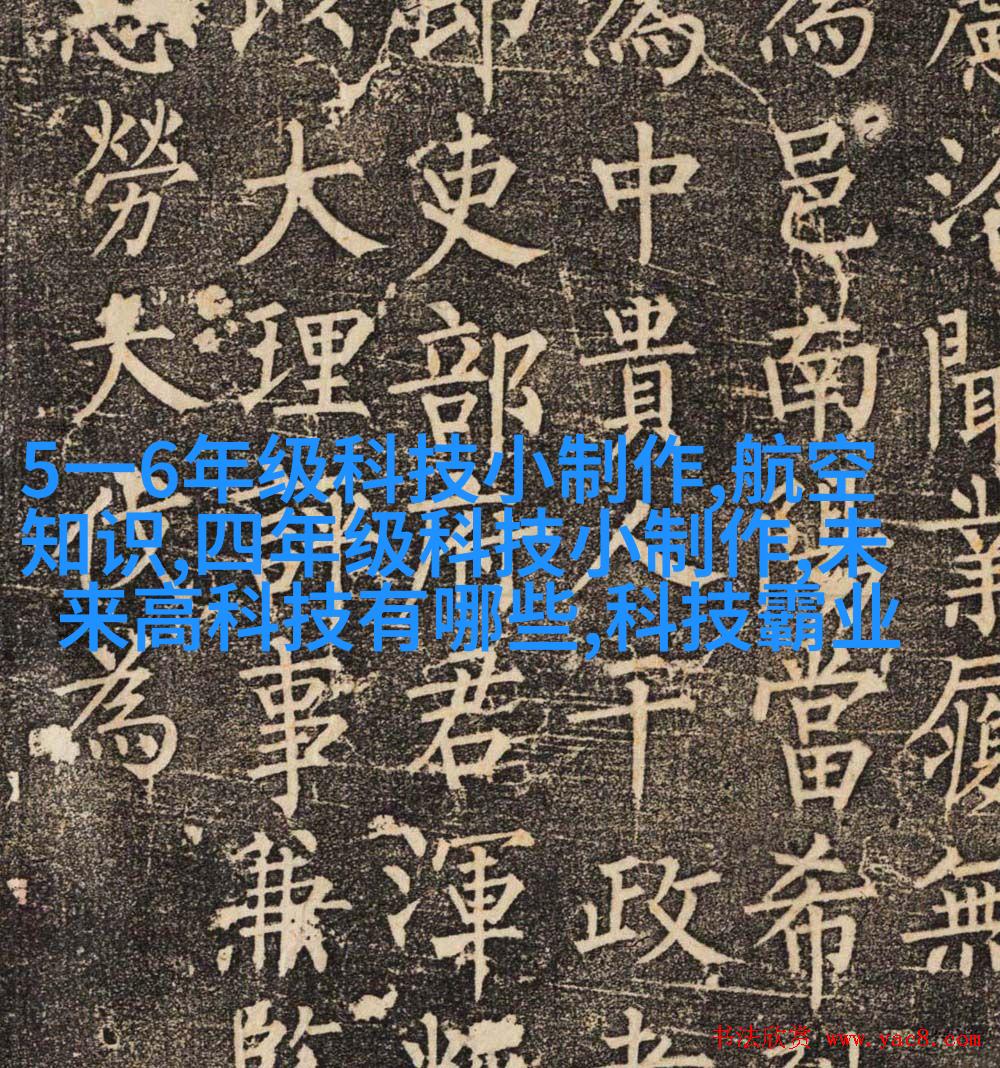 聞無
為邑南當希
為中貴人干政
郎吏部君渾
以大理評事兼監
勞大為
5一6年级科技小制作,航空
知识,四年级科技小制作,未
来高科技有哪些,科技霸业
书法欣赏 www.yac8.com